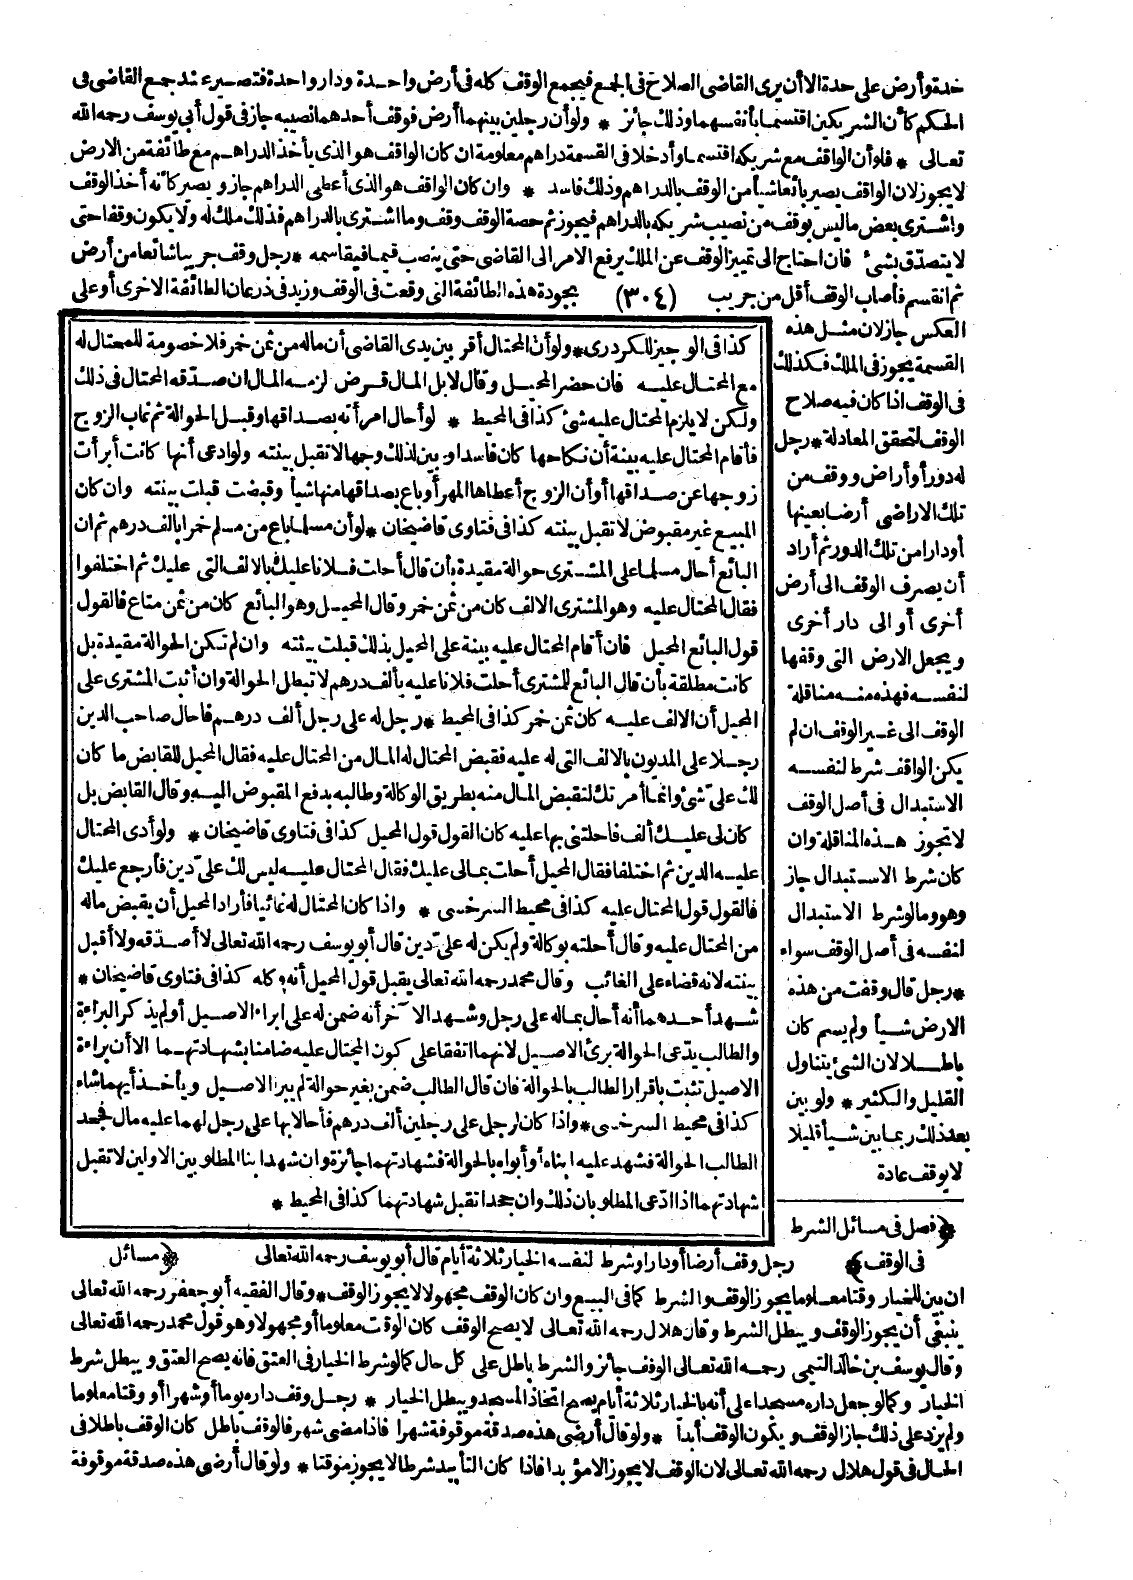 حدة وأرض على حدة الا أن يرى القاضى الصلاح فى الجمع فيجمع الوقف كله فى أرض واحدة ودار واحدة فتصير عند جمع القاضى فى
الحكم كأن الشريكين اقتسما بأنفسهما وذلك جائز * ولو أن رجلين بينهما أرض فوقف أحدهما نصيبه جاز فى قول أبى يوسف رحمه الله
تعالى * فلو أن الواقف مع شريكه اقتسما وأدخلا فى القسمة دراهم معلومة ان كان الواقف هو الذى يأخذ الدراهم مع طائفة من الارض
لا يجوز لان الواقف يصير بائعا شيأ من الوقف بالدراهم وذلك فاسد * وان كان الواقف هو الذى أعطى الدراهم جاز ويصير كأنه أخذ الوقف
واشترى بعض ما ليس بوقف من نصيب شريكه بالدراهم فيجوز ثم حصة الوقف وقف وما اشترى بالدراهم فذلك ملك له ولا يكون وقفا حتى
لا يتصدق بشئ فان احتاج الى تمييز الوقف عن الملك يرفع الامر الى القاضى حتى ينصب قيما فيقاسمه * رجل وقف جريبا شائعا من أرض
ثم انقسم فأصاب الوقف أقل من جريب (٣٠٤) بجودة هذه الطائفة التى وقعت فى الوقف وزيد فى ذرعان الطائفة الاخرى أو على
العكس جاز لان مثل هذه
القسمة يجوز فى الملك فكذلك
فى الوقف اذا كان فيه صلاح
الوقف لتحقق المعادلة * رجل
له دور أو أراض ووقف من
تلك الاراضى أرضا بعينها
أو دارا من تلك الدور ثم أراد
أن يصرف الوقف الى أرض
أخرى أو الى دار أخرى
ويجعل الارض التى وقفها
لنفسه فهذه منه مناقلة
الوقف الى غير الوقف ان لم
يكن الواقف شرط لنفسه
الاستبدال فى أصل الوقف
لا تجوز هذه المناقلة وان
كان شرط الاستبدال جاز
وهو وما لو شرط الاستبدال
لنفسه فى أصل الوقف سواء
* رجل قال وقفت من هذه
الارض شيأ ولم يسم كان
باطلا لان الشئ يتناول
القليل والكثير * ولو بين
بعد ذلك ربما بين شيأ قليلا
لا يوقف عادة
﴿فصل فى مسائل الشرط
فى الوقف﴾
كذا فى الوجيز للكردرى * ولو أن المحتال أقر بين يدى القاضى أن ماله من ثمن خمر فلا خصومة للمحتال له
مع المحتال عليه فان حضر المحيل وقال لا بل المال قرض لزمه المال ان صدقه المحتال فى ذلك
ولكن لا يلزم المحتال عليه شئ كذا فى المحيط * لو أحال امرأته بصداقها وقبل الحوالة ثم غاب الزوج
فأقام المحتال عليه بينة أن نكاحها كان فاسدا وبين لذلك وجها لا تقبل بينته ولو ادعى أنها كانت أبرأت
زوجها عن صداقها أو أن الزوج أعطاها المهر أو باع بصداقها منها شيأ وقبضت قبلت بينته وان كان
المبيع غير مقبوض لا تقبل بينته كذا فى فتاوى قاضيخان * لو أن مسلما باع من مسلم خمرا بألف درهم ثم ان
البائع أحال مسلما على المشترى حوالة مقيدة بأن قال أحلت فلانا عليك بالالف التى عليك ثم اختلفوا
فقال المحتال عليه وهو المشترى الالف كان من ثمن خمر وقال المحيل وهو البائع كان من ثمن متاع فالقول
قول البائع المحيل فان أقام المحتال عليه بينة على المحيل بذلك قبلت بينته وان لم تكن الحوالة مقيدة بل
كانت مطلقة بأن قال البائع للمشترى أحلت فلانا عليه بألف درهم لا تبطل الحوالة وان أثبت المشترى على
المحيل أن الالف عليه كان ثمن خمر كذا فى المحيط * رجل له على رجل ألف درهم فاحال صاحب الدين
رجلا على المديون بالالف التى له عليه فقبض المحتال له المال من المحتال عليه فقال المحيل للقابض ما كان
لك على شئ وانما أمرتك لتقبض المال منه بطريق الوكالة وطالبه بدفع المقبوض اليه وقال القابض بل
كان لى عليك ألف فاحلتنى بها عليه كان القول قول المحيل كذا فى فتاوى قاضيخان * ولو أدى المحتال
عليه الدين ثم اختلفا فقال المحيل أحلت بمالى عليك فقال المحتال عليه ليس لك على دين فأرجع عليك
فالقول قول المحتال عليه كذا فى محيط السرخسى * واذا كان المحتال له غائبا فأراد المحيل أن يقبض ماله
من المحتال عليه وقال أحلته بوكالة ولم يكن له على دين قال أبو يوسف رحمه الله تعالى لا أصدقه ولا أقبل
بينته لانه قضاء على الغائب وقال محمد رحمه الله تعالى يقبل قول المحيل أنه وكله كذا فى فتاوى قاضيخان *
شهد أحدهما أنه أحال بماله على رجل وشهد الآخر أنه ضمن له على ابراء الاصيل أو لم يذكر البراءة
والطالب يدعى الحوالة برئ الاصيل لانهما اتفقا على كون المحتال عليه ضامنا بشهادتهما الا أن براءة
الاصيل تثبت باقرار الطالب بالحوالة فان قال الطالب ضمن بغير حوالة لم يبرا الاصيل ويأخذ أيهما شاء
كذا فى محيط السرخسى * واذا كان لرجل على رجلين ألف درهم فأحالا بها على رجل لهما عليه مال فجحد
الطالب الحوالة فشهد عليه ابناه أو أبواه بالحوالة فشهادتهما جائزة وان شهد ابنا المطلوبين الاولين لا تقبل
شهادتهما اذا ادعى المطلوبان ذلك وان جحدا تقبل شهادتهما كذا فى المحيط *
رجل وقف أرضا أو دارا وشرط لنفسه الخيار ثلاثة أيام قال أبو يوسف رحمه الله تعالى ﴿مسائل
ان بين للخيار وقتا معلوما يجوز الوقف والشرط كما فى البيع وان كان الوقف مجهولا لا يجوز الوقف * وقال الفقيه أبو جعفر رحمه الله تعالى
ينبغى أن يجوز الوقف ويبطل الشرط وقال هلال رحمه الله تعالى لا يصح الوقف كان الوقت معلوما أو مجهولا وهو قول محمد رحمه الله تعالى
وقال يوسف بن خالد التيمى رحمه الله تعالى الوقف جائز والشرط باطل على كل حال كما لو شرط الخيار فى العتق فانه يصح العتق ويبطل شرط
الخيار وكما لو جعل داره مسجدا على أنه بالخيار ثلاثة أيام يصح اتخاذ المسجد ويبطل الخيار * رجل وقف داره يوما أو شهرا أو وقتا معلوما
ولم يزد على ذلك جاز الوقف ويكون الوقف أبدا * ولو قال أرضى هذه صدقة موقوفة شهرا فاذا مضى شهر فالوقف باطل كان الوقف باطلا فى
الحال فى قول هلال رحمه الله تعالى لان الوقف لا يجوز الا مؤبدا فاذا كان التأبيد شرطا لا يجوز موقتا * ولو قال أرضى هذه صدقة موقوفة